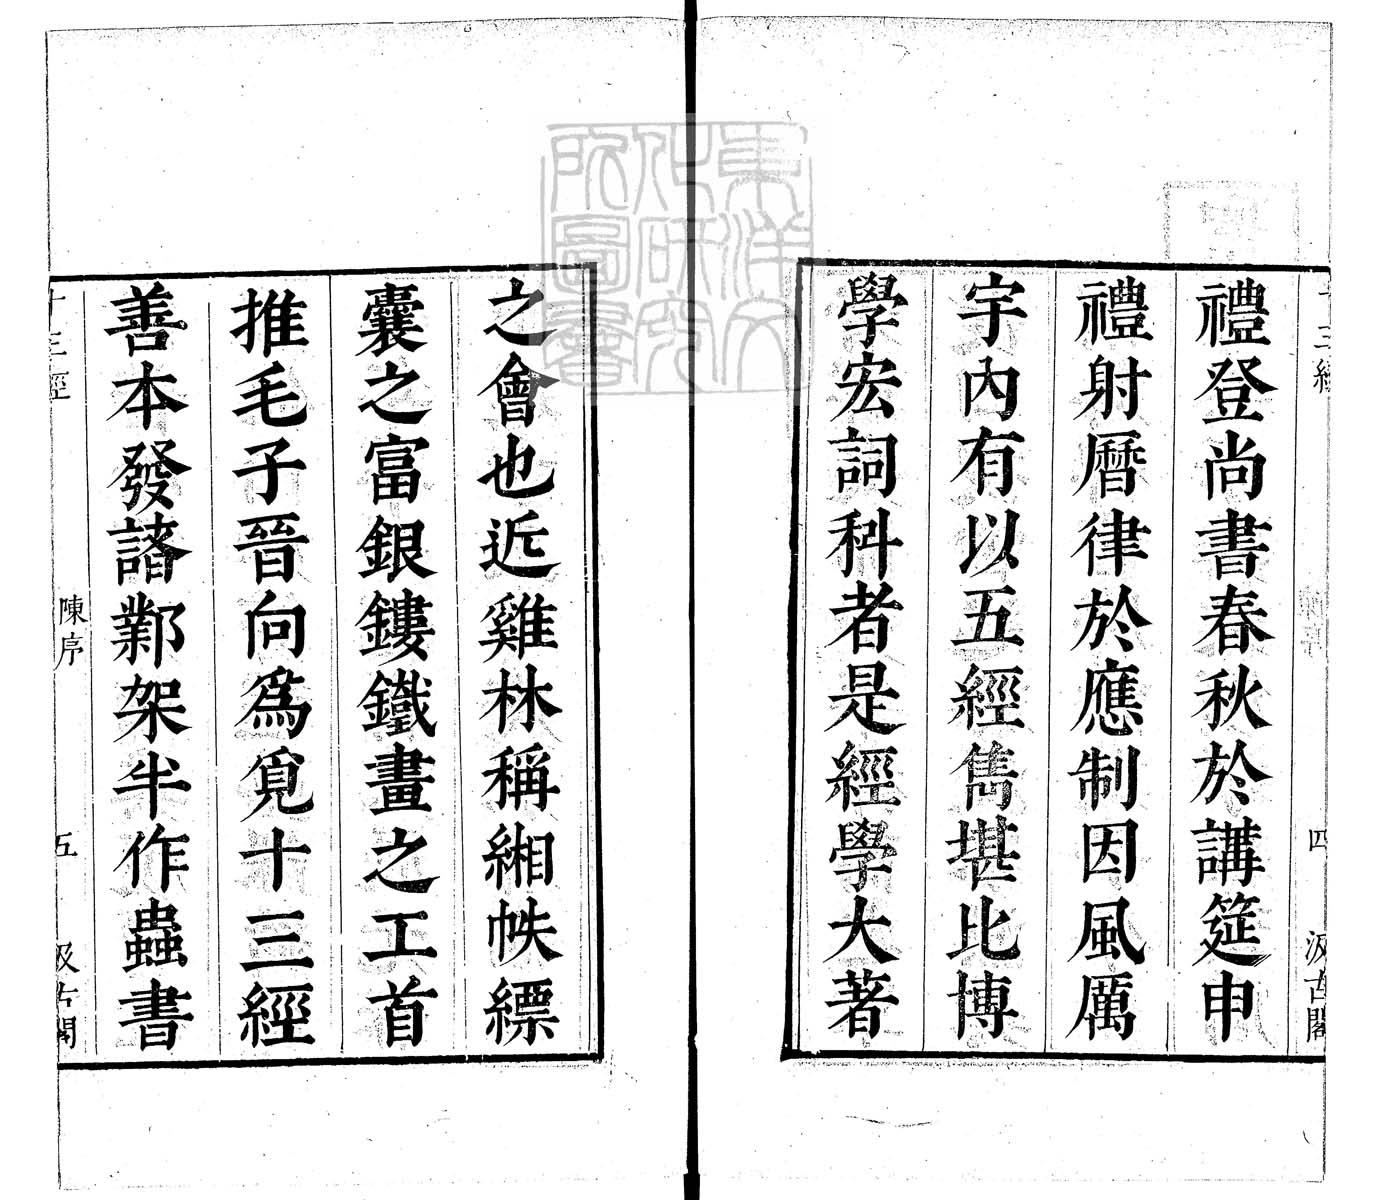 十三經
四
汲古閣
禮登尚書春秋於講筵申
禮射曆律於應制因風厲
宇內有以五經雋堪比博
學宏詞科者是經學大著
之會也近雞林稱緗帙縹
囊之富銀鏤鐵畫之工首
推毛子晉向為覓十三經
善本發諮鄴架半作蟲書
十三經
陳序
五
汲古閣
東洋文
化研究
所圖書